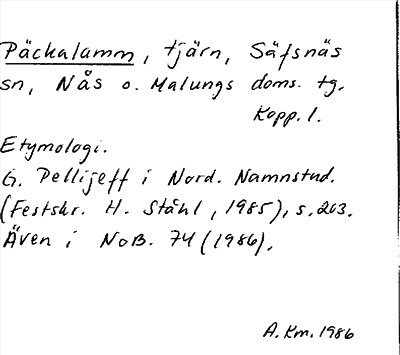 Päckalamm, tjärn, Säfsnäs
sn, Nås o. Malungs doms. tg.
Kopp. l.
Etymologi.
G. Pellijeff i Nord. Namnstud.
(Festskr. H. Ståhl, 1985), s. 263.
Även i NoB. 74 (1986).
A. Km. 1986